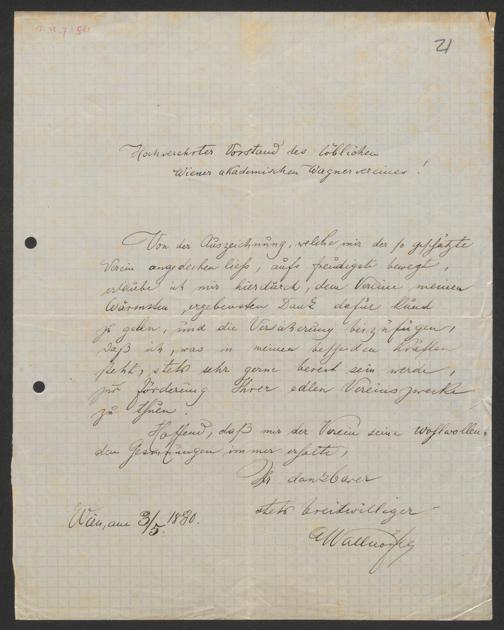 21
Hochverehrter Vorstand des löblichen
Wiener akademischen Wagnervereines!
Von der Auszeichnung, welche mir der so geschätzte
Verein angedeihen ließ, aufs freudigst bewegt,
erlaube ich mir hierdurch, dem Vereine meinen
wärmsten, ergebensten Dank dafür kund
zu geben, und die Versicherung beizufügen,
daß ich, was in meinen besten Kräften
steht, stets sehr gerne bereit sein werde,
zur Förderung Ihrer edlen Vereinszwecke
zu thuen.
Hoffend, daß mir der Verein seine wohlwollen-
den Gesinnungen immer erhalte,
Ihr dankbarer
stets breitwilliger
Wien, am 3/5 1880.